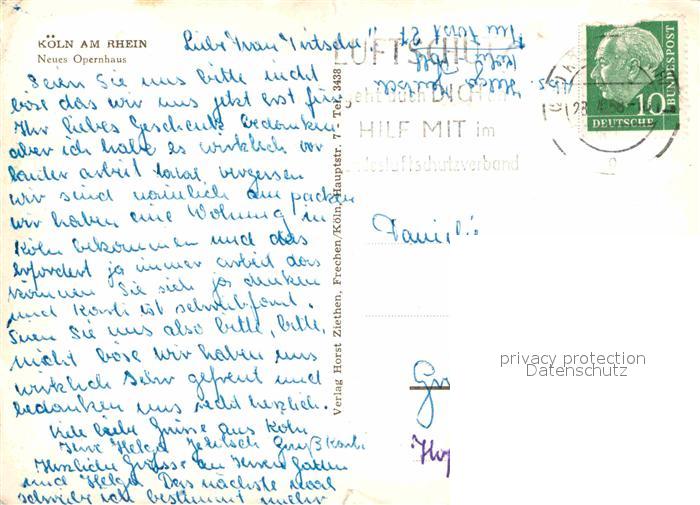 KÖLN AM RHEIN
Neues Opernhaus
Liebe Frau
Seien Sie uns bitte nicht
böse das wir uns jetzt erst fürs
Ihr liebes Geschenk bedanken
aber ich habe es wirklich vor
lauter arbeit total vergessen
wir sind nämlich am packen
wir haben eine Wohnung in
Köln bekommen und das
erfordert ja immer arbeit das
können Sie sich ja denken
und Karli ist schreibfaul.
Seien Sie uns also bitte, bitte,
nicht böse wir haben uns
wirklich Sehr gefreut und
bedanken uns recht herzlich.
Viele liebe Grüsse aus Köln
Ihre Helga Gruß Karli
Herzliche Grüsse an Ihren Gatten
und Helga Das nächste mal
schreibe ich bestimmt mehr
Verlag Horst Ziethen, Frechen/Köln, Hauptstr. 7 - Tel. 3438
Abs. Helga
Köln
LUFTSCHUTZ
geht auch DICH
HILF MIT im
Bundesluftschutzverband
DEUTSCHE
BUNDESPOST
10
Familie
privacy protection
Datenschutz